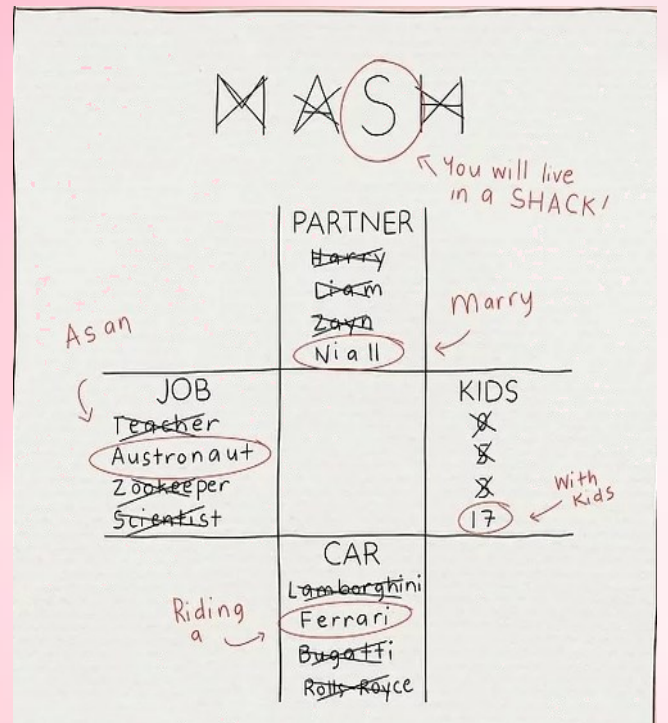 MASH
You will live
in a SHACK!
PARTNER
Harry
Liam
Zayn
Niall
Marry
As an
JOB
Teacher
Austronaut
Zookeeper
Scientist
KIDS
0
5
3
17
With
Kids
CAR
Lamborghini
Ferrari
Bugatti
Rolls-Royce
Riding
a